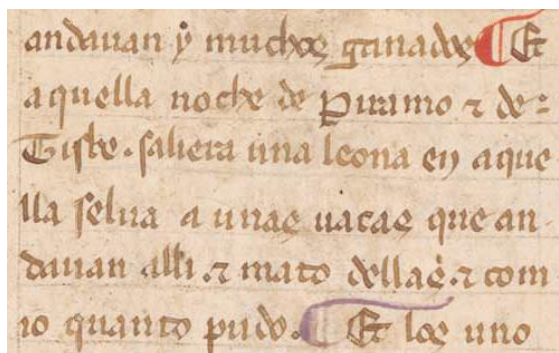 andauan y muchos ganados ¶ Et
aquella noche de Piramo ⁊ de=
Tisbe. saliera una leona en aque
lla selua a unas uacas que an
dauan alli. ⁊ mato dellas. ⁊ com
io quanto pudo. ¶ Et los uno